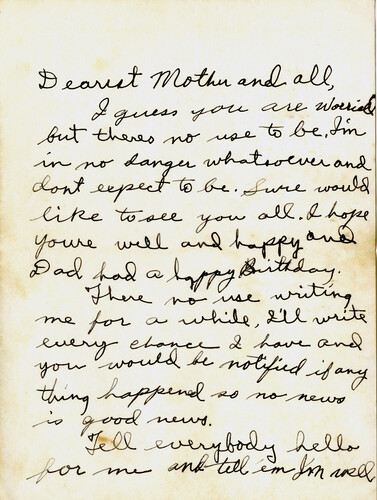 Dearest Mother and all,
I guess you are worried
but theres no use to be. I'm
in no danger whatsoever and
dont expect to be. Sure would
like to see you all. I hope
youre well and happy and
Dad had a happy Birthday.
There no use writing
me for a while, I'll write
every chance I have and
you would be notified if any
thing happend so no news
is good news.
Tell everybody hello
for me and tell em I'm well